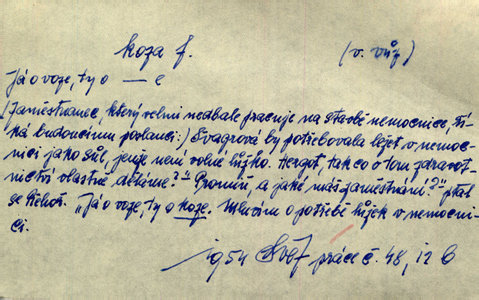 koza f. (v. vůz)
Já o voze, ty o — e
(Zaměstnanec, který velmi nedbale pracuje na stavbě nemocnice, ří-
ká budoucímu poslanci:) Švagrová by potřebovala ležet v nemoc-
nici jako sůl, jenže není volné lůžko. Hergot, tak co o tom zdravot-
nictví vlastně děláme?" "Promiň, a jaké máš zaměstnání?" ptal
se
"Já o voze, ty o koze. Mluvím o potřebě lůžek v nemocni-
ci.
1954 práce č. 48, 12 b